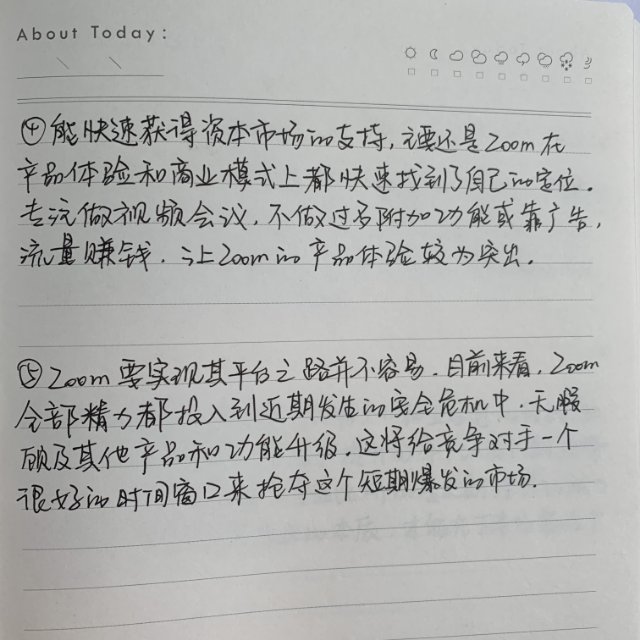 About Today:
④能快速获得资本市场的支持,主要还是Zoom在
产品体验和商业模式上都快速找到了自己的定位。
专注做视频会议,不做过多附加功能或靠广告,
流量赚钱,让Zoom的产品体验较为突出。
⑤Zoom要实现其平台之路并不容易,目前来看,Zoom
全部精力都投入到近期发生的安全危机中,无暇
顾及其他产品和功能升级,这将给竞争对手一个
很好的时间窗口来抢夺这个短期爆发的市场.